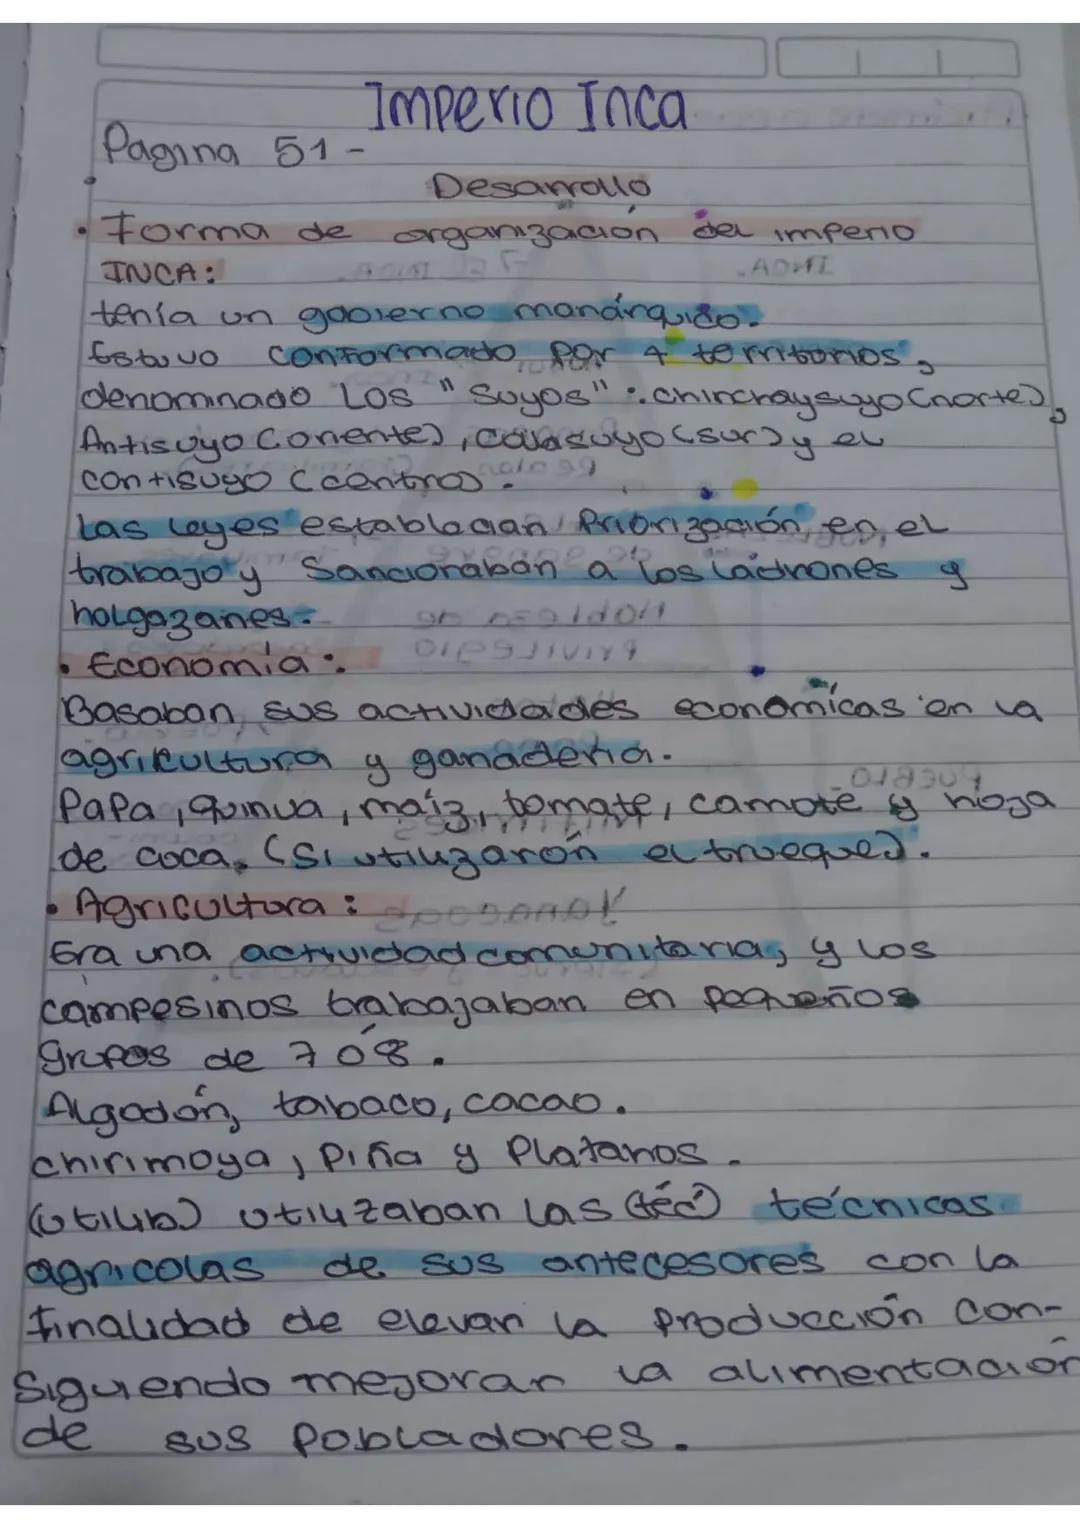 Imperio Inca
Pagina 51-
Desarrollo
• Forma de organización del imperio
INCA:
tenía un gobierno monárquico.
Estuvo conformado por 4 territorios,
denominado Los "Suyos": chinchaysuyo (norte),
Antisuyo (oriente), collasuyo (sur) y el
contisuyo (centro).
Las leyes establecian Priorización en el
trabajo y Sancionaban a los ladrones y
holgazanes.
• Economía:
Basaban sus actividades económicas en la
agricultura y ganaderia.
Papa, quinua, maíz, tomate, camote y hoja
de coca. (Si utilizarón el trueque).
• Agricultura:
Era una actividad comunitaria, y los
campesinos trabajaban en pequeños
grupos de 7 ó 8.
Algodón, tabaco, cacao.
chirimoya, Piña y Platanos.
utilizaban las (téc) técnicas
agricolas de sus antecesores con la
finalidad de elevar la producción con-
siguiendo mejorar la alimentación
de sus Pobladores.